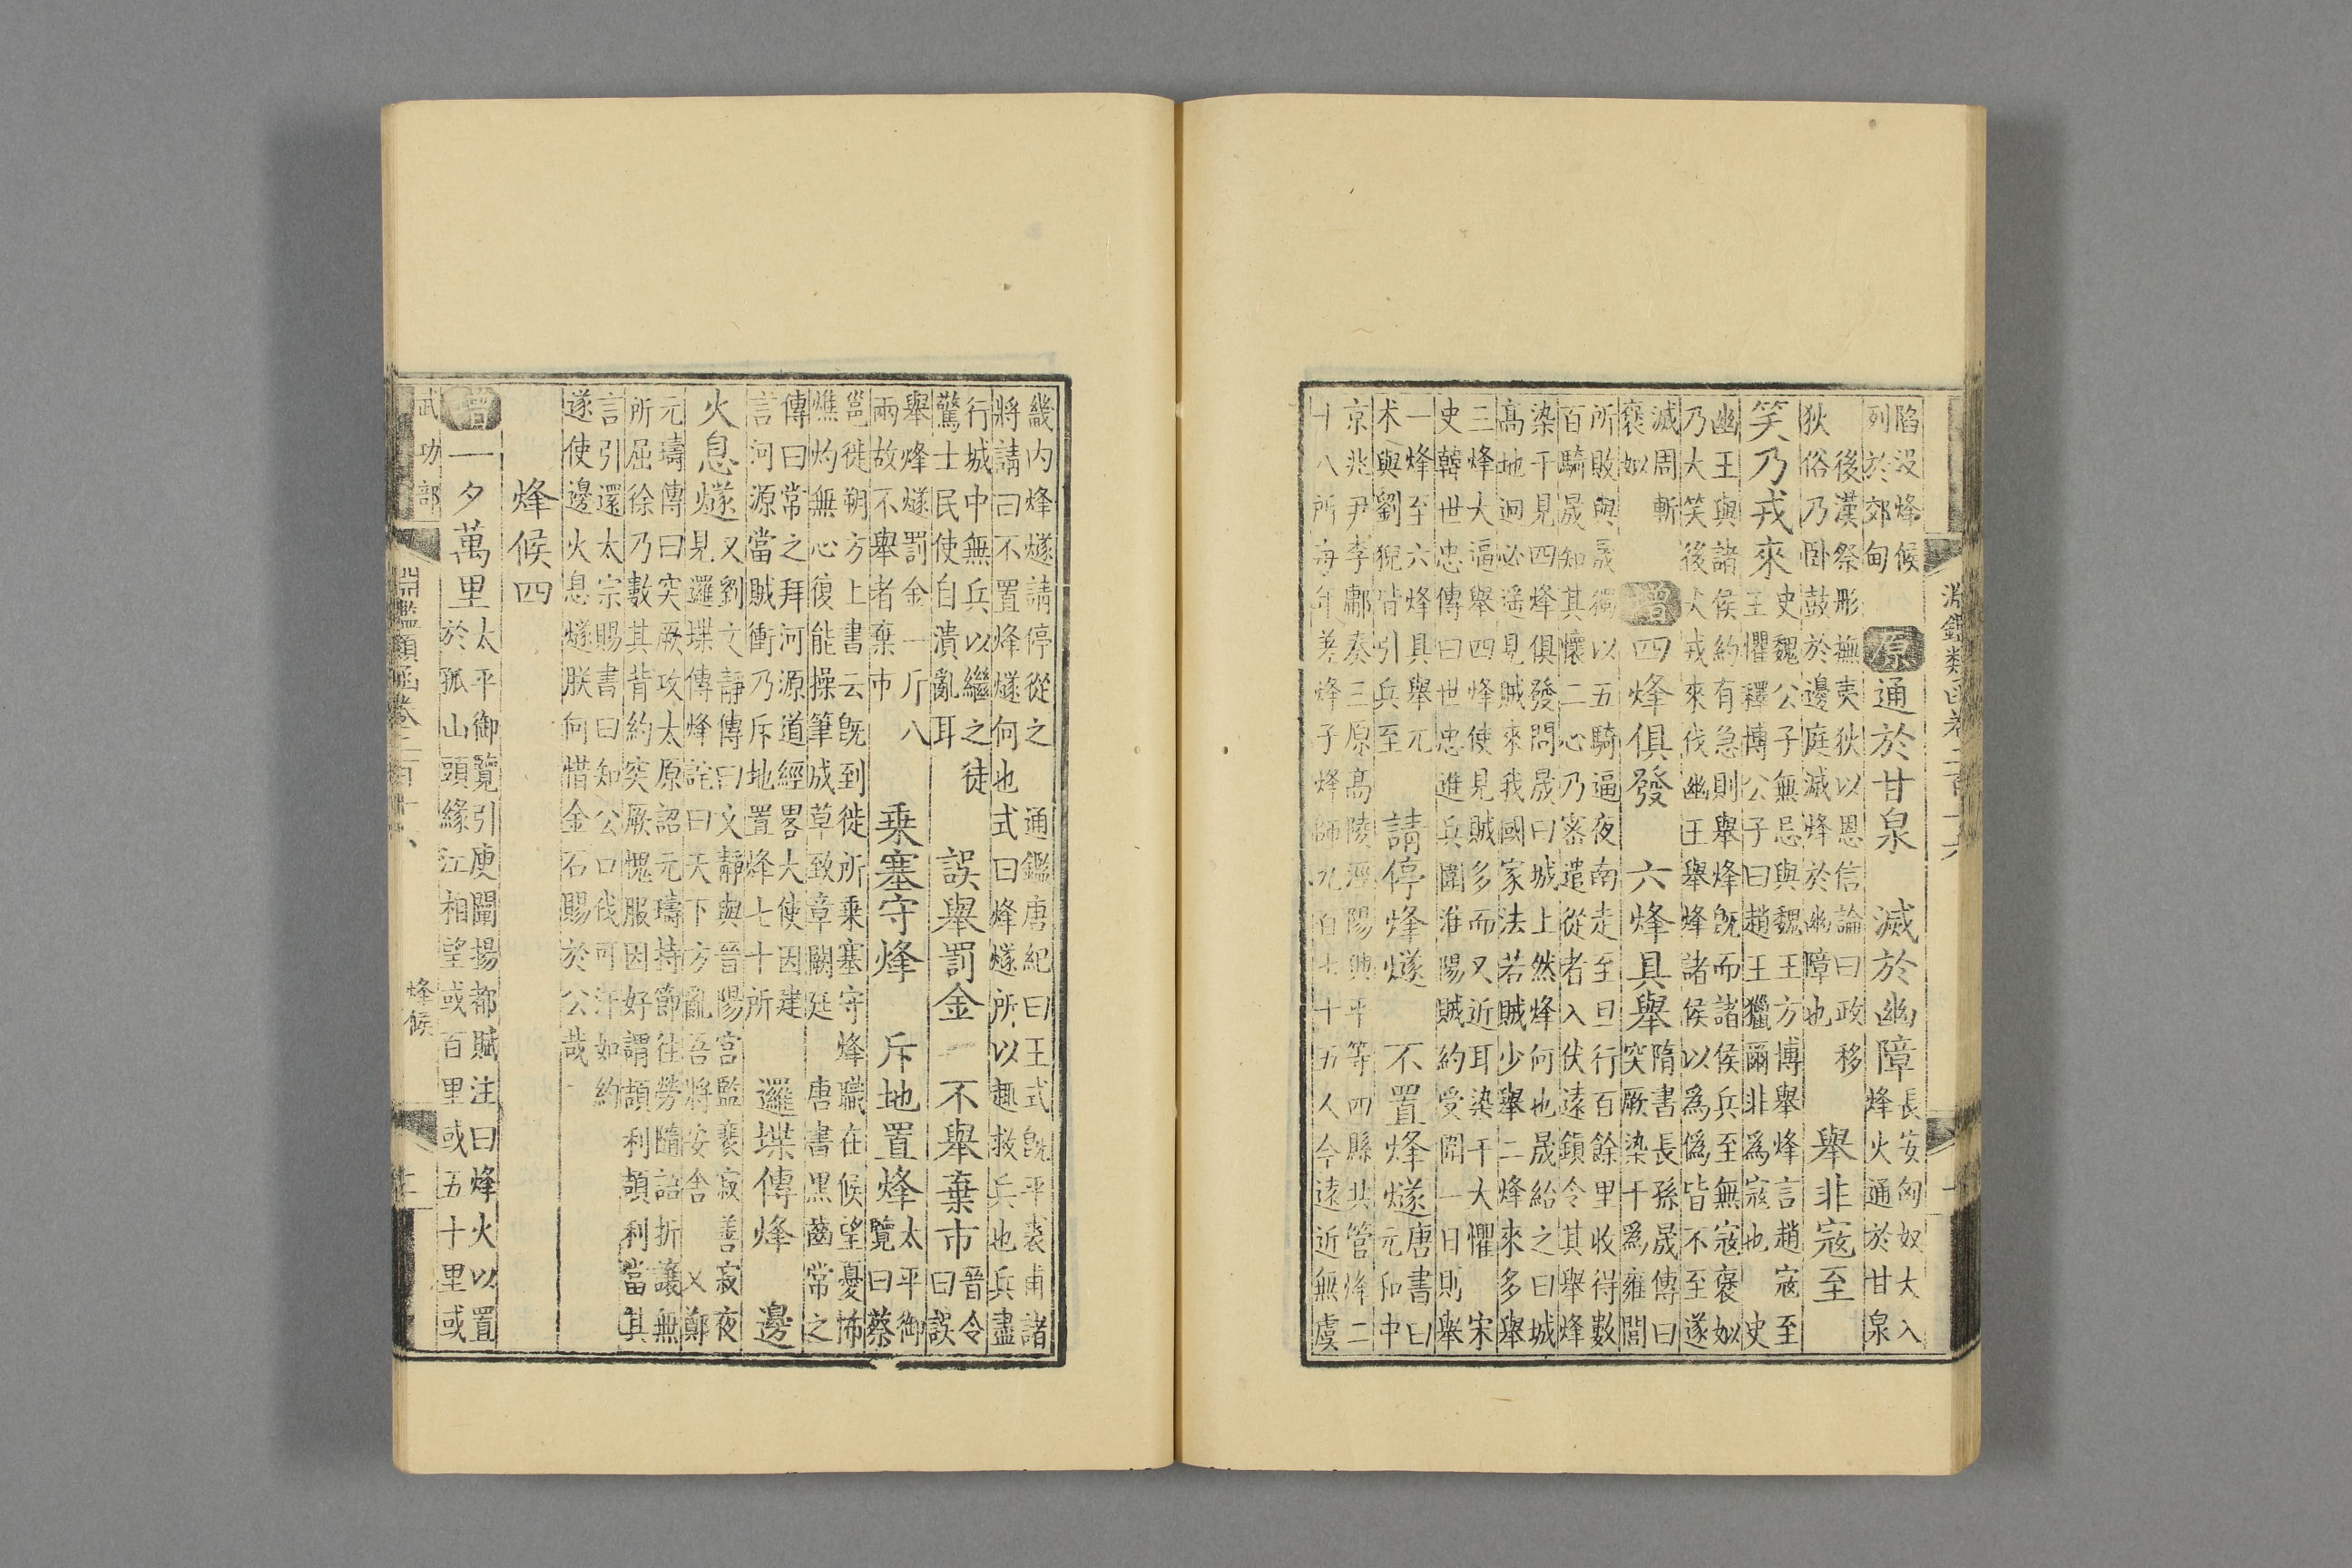 淵鑑類函卷二百十六
陷沒烽候
列於郊甸
原通於甘泉　滅於幽障
長安匈奴大入
烽火通於甘泉
後漢祭肜撫夷狄以恩信論曰政移
狄俗乃卧鼓於邊庭滅烽於幽障也
舉非寇至
笑乃戎來
史魏公子無忌與魏王方博舉烽言趙寇至
王懼釋博公子曰趙王獵爾非爲寇也　史
幽王與諸侯約有急則舉烽旣而諸侯兵至無寇褒姒
乃大笑後犬戎來伐幽王舉烽諸侯以爲僞皆不至遂
滅周斬
褒姒
增四烽俱發　六烽具舉
隋書長孫晟傳曰
突厥染干爲雍閭
所敗與晟獨以五騎逼夜南走至旦行百餘里收得數
百騎晟知其懷二心乃密遣從者入伏遠鎮令其舉烽
染干見四烽俱發問晟曰城上然烽何也晟紿之曰城
高地迥必遙見賊來我國家法若賊少舉二烽來多舉
三烽大逼舉四烽使見賊多而又近耳染干大懼　宋
史韓世忠傳曰世忠進兵圍淮陽賊約受圍一日則舉
一烽至六烽具舉兀
术與劉猊皆引兵至
請停烽燧　不置烽燧
唐書曰
元和中
京兆尹李鄘奏三原高陵涇陽興平等四縣共管烽二
十八所每年差烽子烽師九百七十五人今遠近無虞
畿内烽燧請停從之　通鑑唐紀曰王式旣平裘甫諸
將請曰不置烽燧何也式曰烽燧所以趣救兵也兵盡
行城中無兵以繼之徒
驚士民使自潰亂耳
誤舉罰金　不舉棄市
晉令
曰誤
舉烽燧罰金一斤八
兩故不舉者棄市
乗塞守烽　斥地置烽
太平御
覽曰蔡
邕徙朔方上書云旣到徙所乗塞守烽職在候望憂怖
燋灼無心復能操筆成草致章闕廷　唐書黑齒常之
傳曰常之拜河源道經畧大使因建
言河源當賊衝乃斥地置烽七十所
邏堞傳烽　邊
火息燧
又劉文靜傳曰文靜與晉陽宮監裴寂善寂夜
見邏堞傳烽詫曰天下方亂吾將安舍　又鄭
元璹傳曰突厥攻太原詔元璹持節往勞隨語折讓無
所屈徐乃數其背約突厥愧服因好謂頡利頡利當其
言引還太宗賜書曰知公口伐可汗如約
遂使邊火息燧朕何惜金石賜於公哉
烽候四
增一夕萬里
太平御覽引庾闡揚都賦注曰烽火以置
於孤山頭緣江相望或百里或五十里或
武功部
淵鑑類函卷二百十六
烽候